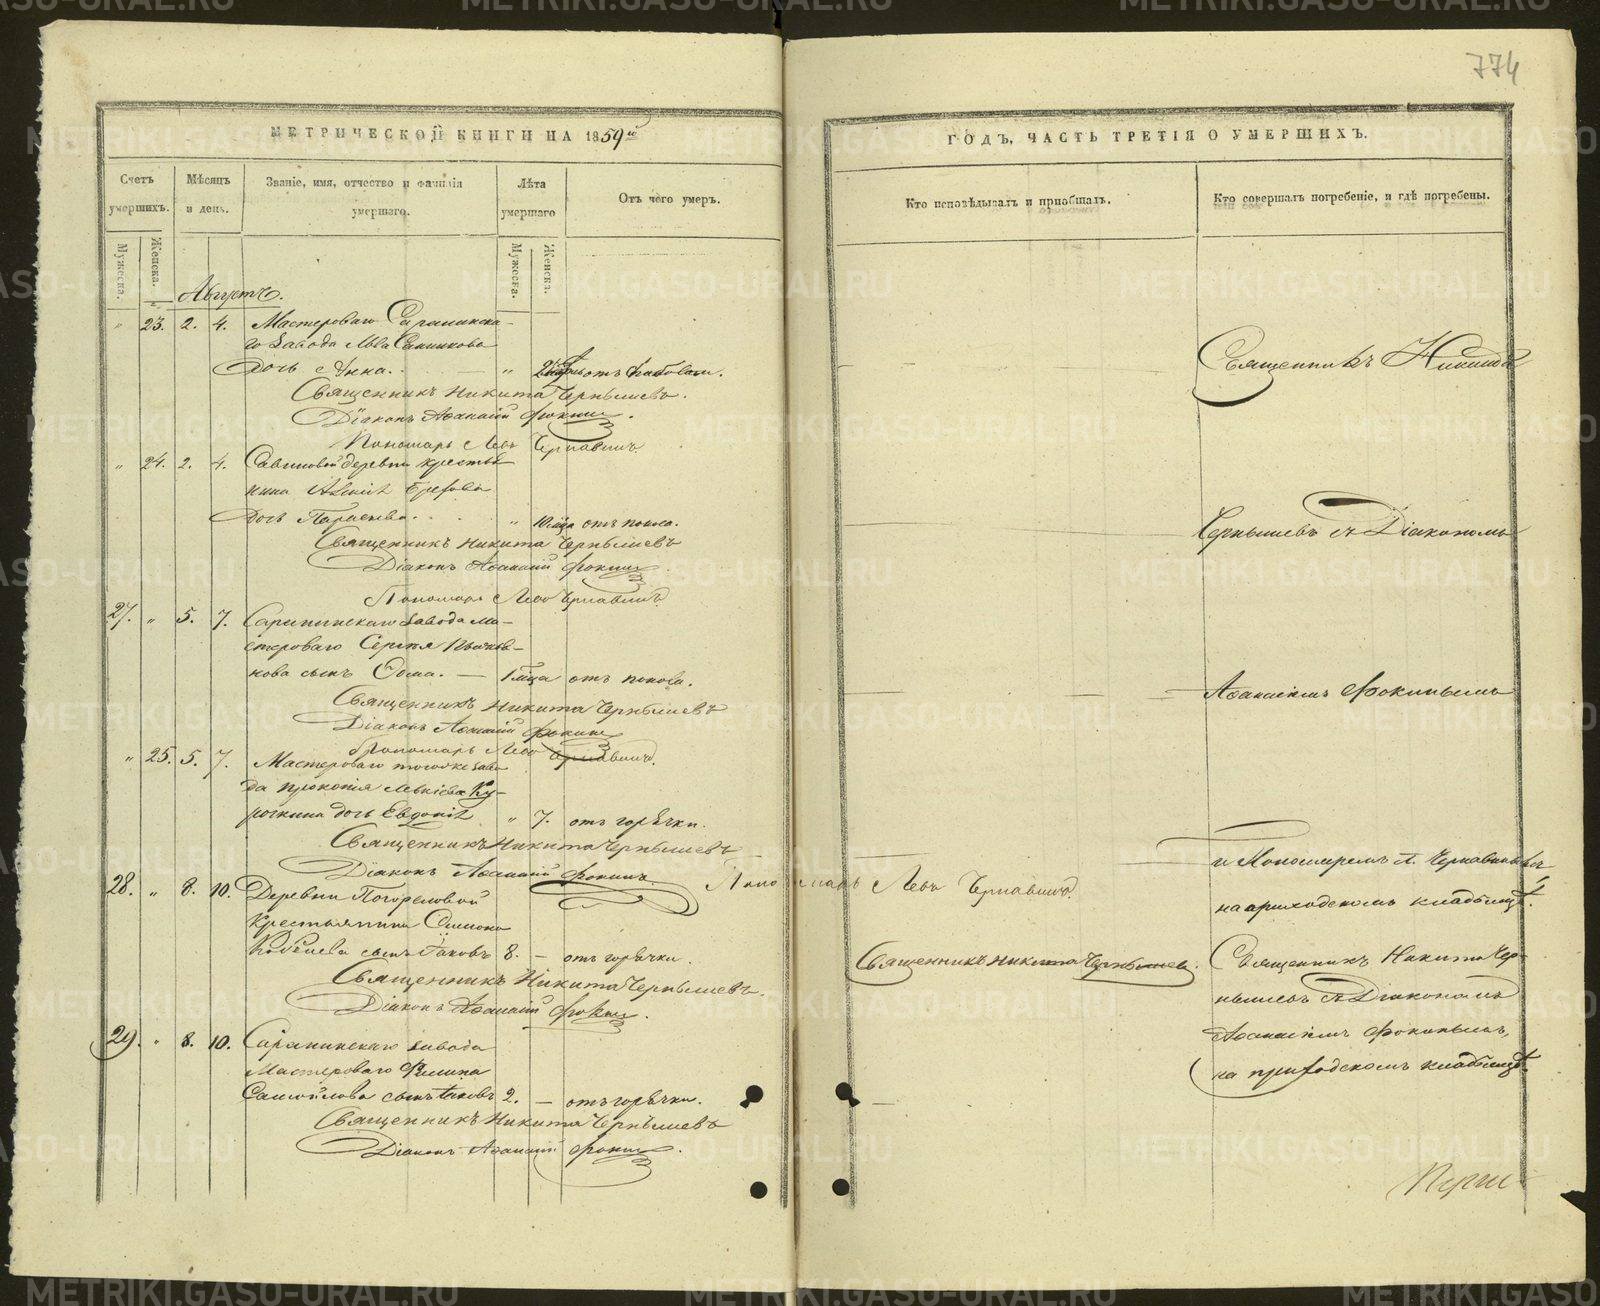 774
МЕТРИЧЕСКОЙ КНИГИ НА 1859й
ГОДЪ, ЧАСТЬ ТРЕТІЯ О УМЕРШИХЪ.
Счетъ умершихъ.
Мѣсяцъ и день.
Званіе, имя, отчество и фамилія умершаго.
Лѣта умершаго
Отъ чего умеръ.
Кто исповѣдывалъ и пріобщалъ.
Кто совершалъ погребеніе, и гдѣ погребены.
Мужеска.
Женска.
Мужеска.
Женска.
Августъ.
" 23. 2. 4. Мастероваго Саранинска-
го завода Льва Санникова
Дочь Анна. "
Священникъ Никита Чернышевъ.
Діаконъ Аѳанасій Фокинъ.
Пономарь Левъ Чернавинъ
" 24. 2. 4. Савиновой деревни крестья
нина Алексѣя
Дочь Параскева. " 10 мца отъ поноса.
Священникъ Никита Чернышевъ
Діаконъ Аѳанасій Фокинъ.
Пономарь Левъ Чернавинъ
27. " 5. 7. Саранинскаго завода ма-
стероваго Сергѣя
нова сынъ Ѳома. — 1 мца отъ поноса.
Священникъ Никита Чернышевъ
Діаконъ Аѳанасій Фокинъ
Пономарь Левъ Чернавинъ.
" 25. 5. 7. Мастероваго тогоже заво
да Прокопія Ку-
рочкина дочь Евдокія " 7. отъ горячки.
Священникъ Никита Чернышевъ
Діаконъ Аѳанасій Фокинъ. Пономарь Левъ Чернавинъ.
28. " 8. 10. Деревни Погореловой
Крестьянина Симона
сынъ Іаковъ 8. — отъ горячки.
Священникъ Никита Чернышевъ.
Діаконъ Аѳанасій Фокинъ.
29. " 8. 10. Саранинскаго завода
Мастероваго Филипа
Самойлова сынъ Іаковъ 2. — отъ горячки.
Священникъ Никита Чернышевъ
Діаконъ Аѳанасій Фокинъ.
Священникъ Никита Чернышевъ.
Священникъ Никита
Чернышевъ съ Діакономъ
Аѳанасіемъ Фокинымъ
и Пономаремъ Л. Чернавинымъ,
на приходскомъ кладбищѣ.
Священникъ Никита Чер-
нышевъ съ Діакономъ
Аѳанасіемъ Фокинымъ,
на приходскомъ кладбищѣ.
METRIKI.GASO-URAL.RU